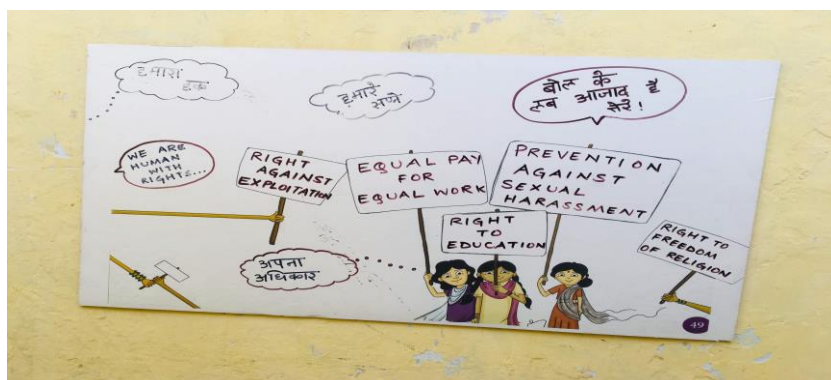 हमारा
हक
हमारे
सपने
बोल के
लब आजाद है
मेरे!
WE ARE
HUMAN
WITH
RIGHTS...
RIGHT
AGAINST
EXPLOITATION
EQUAL PAY
FOR
EQUAL WORK
PREVENTION
AGAINST
SEXUAL
HARASSMENT
RIGHT
TO
EDUCATION
RIGHT TO
FREEDOM
OF RELIGION
अपना
अधिकार
49